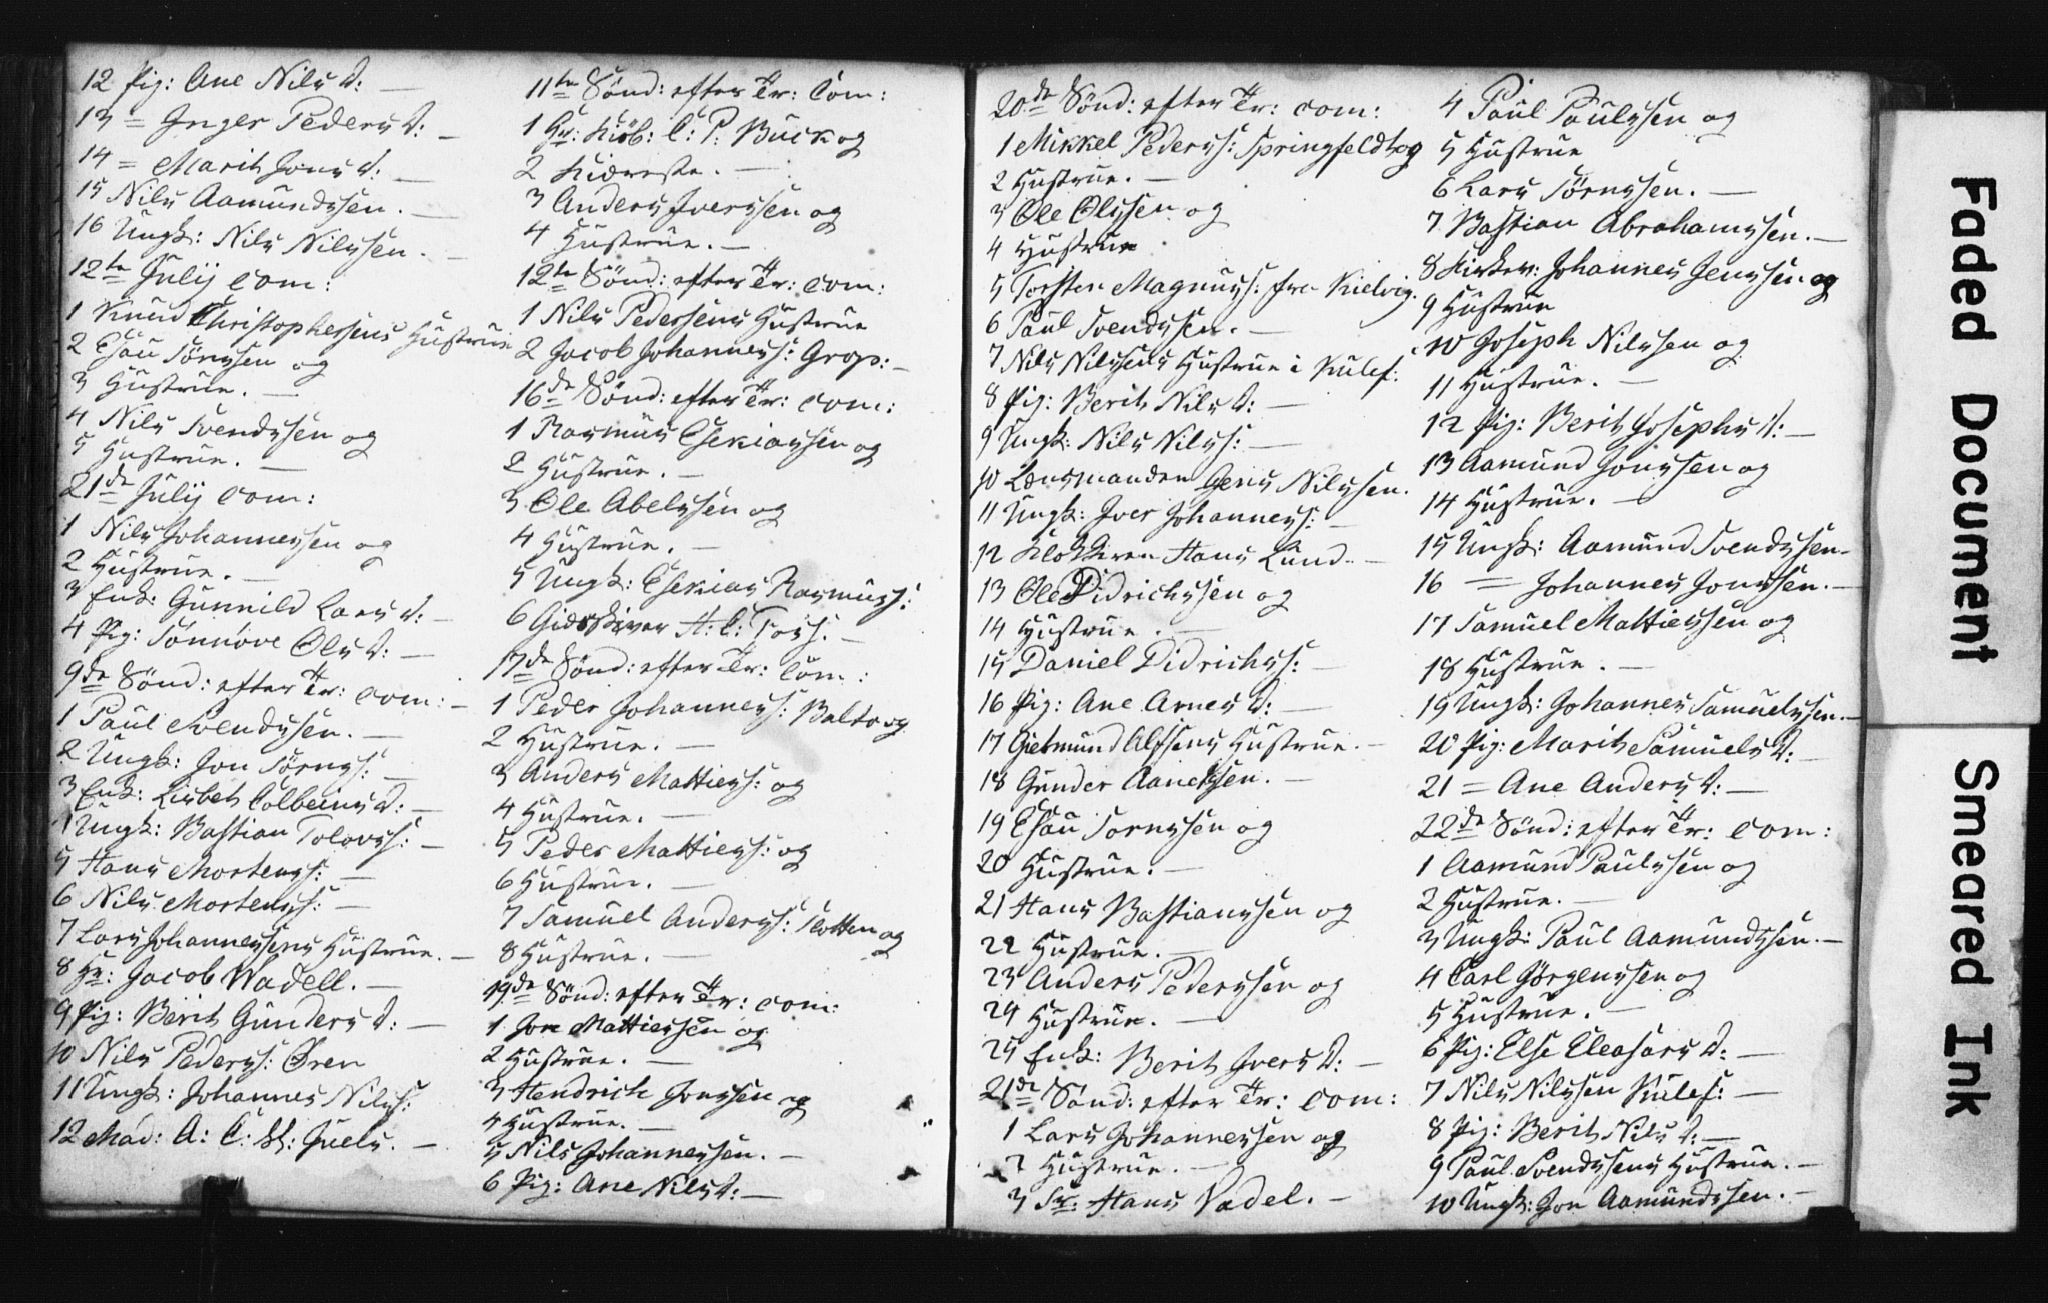 12 Pig: Ane Nils D: —
13 = Inger Peders D: —
14 = Marith Jons D: —
15 Nils Aamundssen. —
16 Ungk: Nils Nilssen. —
12te Julij com:
1 Knud Christophersens Hustrue
2 Esau Törnssen og
3 Hustrue. —
4 Nils Svendssen og
5 Hustrue. —
21de Julij com:
1 Nils Johannessen og
2 Hustrue. —
3 Enk: Gunnild Lars D: —
4 Pig: Sönnove Ols D: —
9de Sönd: efter Tr: com: —
1 Paul Svendssen. —
2 Ungk: Jon Törnss: —
3 Enk: Lisbeth Colbeins D: —
4 Ungk: Bastian Tolovss: —
5 Hans Mortenss: —
6 Nils Mortenss: —
7 Lars Johannessens Hustrue. —
8 Hr: Jacob Wadell. —
9 Pig: Berith Gunders D: —
10 Nils Pederss: Ören
11 Ungk: Johannes Nilss:
12 Mad: A: C: Sl: Juels. —
11te Sönd: efter Tr: Com:
1 Hr: Kiöb: C: P: Buck og
2 Kiæreste. —
3 Anders Iverssen og
4 Hustrue. —
12te Sönd: efter Tr: com:
1 Nils Pedersens Hustrue
2 Jacob Johanness: Grop: —
16de Sönd: efter Tr: com:
1 Rasmus Esekiassen og
2 Hustrue. —
3 Ole Abelssen og
4 Hustrue. —
5 Ungk: Esekias Rasmuss:
6 Giæstgiver H: C: Foss. —
17de Sönd: efter Tr: Com:
1 Peder Johanness: Balto og
2 Hustrue. —
3 Anders Mattiess: og
4 Hustrue. —
5 Peder Mattiess: og
6 Hustrue. —
7 Samuel Anderss: Slotten og
8 Hustrue. —
19de Sönd: efter Tr: com:
1 Jon Mattiessen og
2 Hustrue. —
3 Hendrich Jonssen og
4 Hustrue. —
5 Nils Johannessen. —
6 Pig: Ane Nils D: —
20de Sönd: efter Tr: com:
1 Mikkel Pederss: Springfeldt og
2 Hustrue. —
3 Ole Olssen og
4 Hustrue
5 Torsten Magnuss: fra Kielvig.
6 Paul Svendssen. —
7 Nils Nilssens Hustrue i Kulef:
8 Pig: Berith Nils D: —
9 Ungk: Nils Nilss: —
10 Lænsmanden Jens Nilssen.
11 Ungk: Iver Johanness: —
12 Klokkeren Hans Lund. —
13 Ole Didrichssen og
14 Hustrue. —
15 Daniel Didrichss: —
16 Pig: Ane Arnes D: —
17 Gietmund Alfsens Hustrue. —
18 Gunder Aanessen. —
19 Esau Tornssen og
20 Hustrue. —
21 Hans Bastianssen og
22 Hustrue. —
23 Anders Pederssen og
24 Hustrue. —
25 Enk: Berith Ivers D: —
21de Sönd: efter Tr: com:
1 Lars Johannessen og
2 Hustrue. —
3 Sr: Hans Vadel. —
4 Paul Paulssen og
5 Hustrue
6 Lars Törnssen. —
7 Bastian Abrahamssen. —
8 Kirkev: Johannes Jenssen og
9 Hustrue
10 Joseph Nilssen og
11 Hustrue. —
12 Pig: Berith Josephs D: —
13 Aamund Jonssen og
14 Hustrue. —
15 Ungk: Aamund Svendssen —
16 = Johannes Jonssen. —
17 Samuel Mattiessen og
18 Hustrue. —
19 Ungk: Johannes Samuelssen. —
20 Pig: Marith Samuels D: —
21 = Ane Anders D: —
22de Sönd: efter Tr: com:
1 Aamund Paulssen og
2 Hustrue. —
3 Ungk: Paul Aamundssen. —
4 Carl Görgenssen og
5 Hustrue. —
6 Pig: Else Eleasars D: —
7 Nils Nilssen Kulef: —
8 Pig: Berith Nils D: —
9 Paul Svendssens Hustrue. —
10 Ungk: Jon Aamundssen. —
Faded Document
Smeared Ink